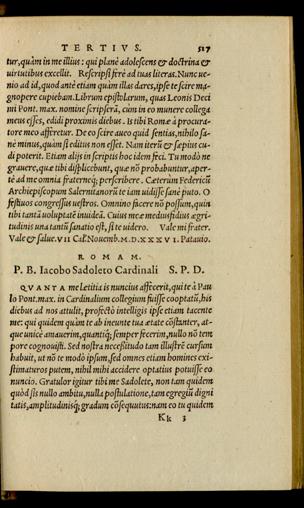 TERTIVS. 517
tur, quàm in me illius: qui planè adolescens & doctrina &
uirtutibus excellit. Rescripsi ferè ad tuas literas. Nunc ue-
nio ad id, quod ante etiam quàm illas dares, ipse te scire ma-
gnopere cupiebam. Librum epistolarum, quas Leonis Deci
mi Pont. max. nomine scripseram, cum in eo munere collega
meus esses, edidi proximis diebus. Is tibi Romæ à procura-
tore meo afferetur. De eo scire aueo quid sentias, nihilo sa-
nè minus, quàm si editus non esset. Nam iterũ & sæpius cu-
di poterit. Etiam alijs in scriptis hoc idem feci. Tu modo ne
grauere, quæ tibi displicebunt, quæ nõ probabuntur, aper-
tè ad me omnia fraterneq́; perscribere. Cæterùm Federicũ
Archiepiscopum Salernitanorũ te iam uidisse sanè puto. O
festiuos congressus uestros. Omnino facere nõ possum, quin
tibi tantã uoluptatẽ inuideã. Cuius meæ mediusfidius ægri-
tudinis una tantũ sanatio est, si te uidero. Vale mi frater.
Vale & salue. VII Cal. Nouemb. M. D. XXXVI. Patauio.
ROMAM.
P. B. Iacobo Sadoleto Cardinali S. P. D.
QVANTA me lætitia is nuncius affecerit, qui te à Pau
lo Pont. max. in Cardinalium collegium fuisse cooptatũ, his
diebus ad nos attulit, profectò intelligis ipse etiam tacente
me: qui quidem quàm te ab ineunte tua ætate cõstanter, at-
que unicè amarim, quantiq́; semper fecerim, nullo nõ tem
pore cognouisti. Sed nostra necessitudo tam illustrẽ cursum
habuit, ut nõ te modò ipsum, sed omnes etiam homines exi-
stimaturos putem, nihil mihi accidere optatius potuisse eo
nuncio. Gratulor igitur tibi me Sadolete, non tam quidem
quòd sis nullo ambitu, nulla postulatione, tam egregiũ digni
tatis, amplitudinisq́; gradum cõsequutus: nam eo tu quidem
Kk 3